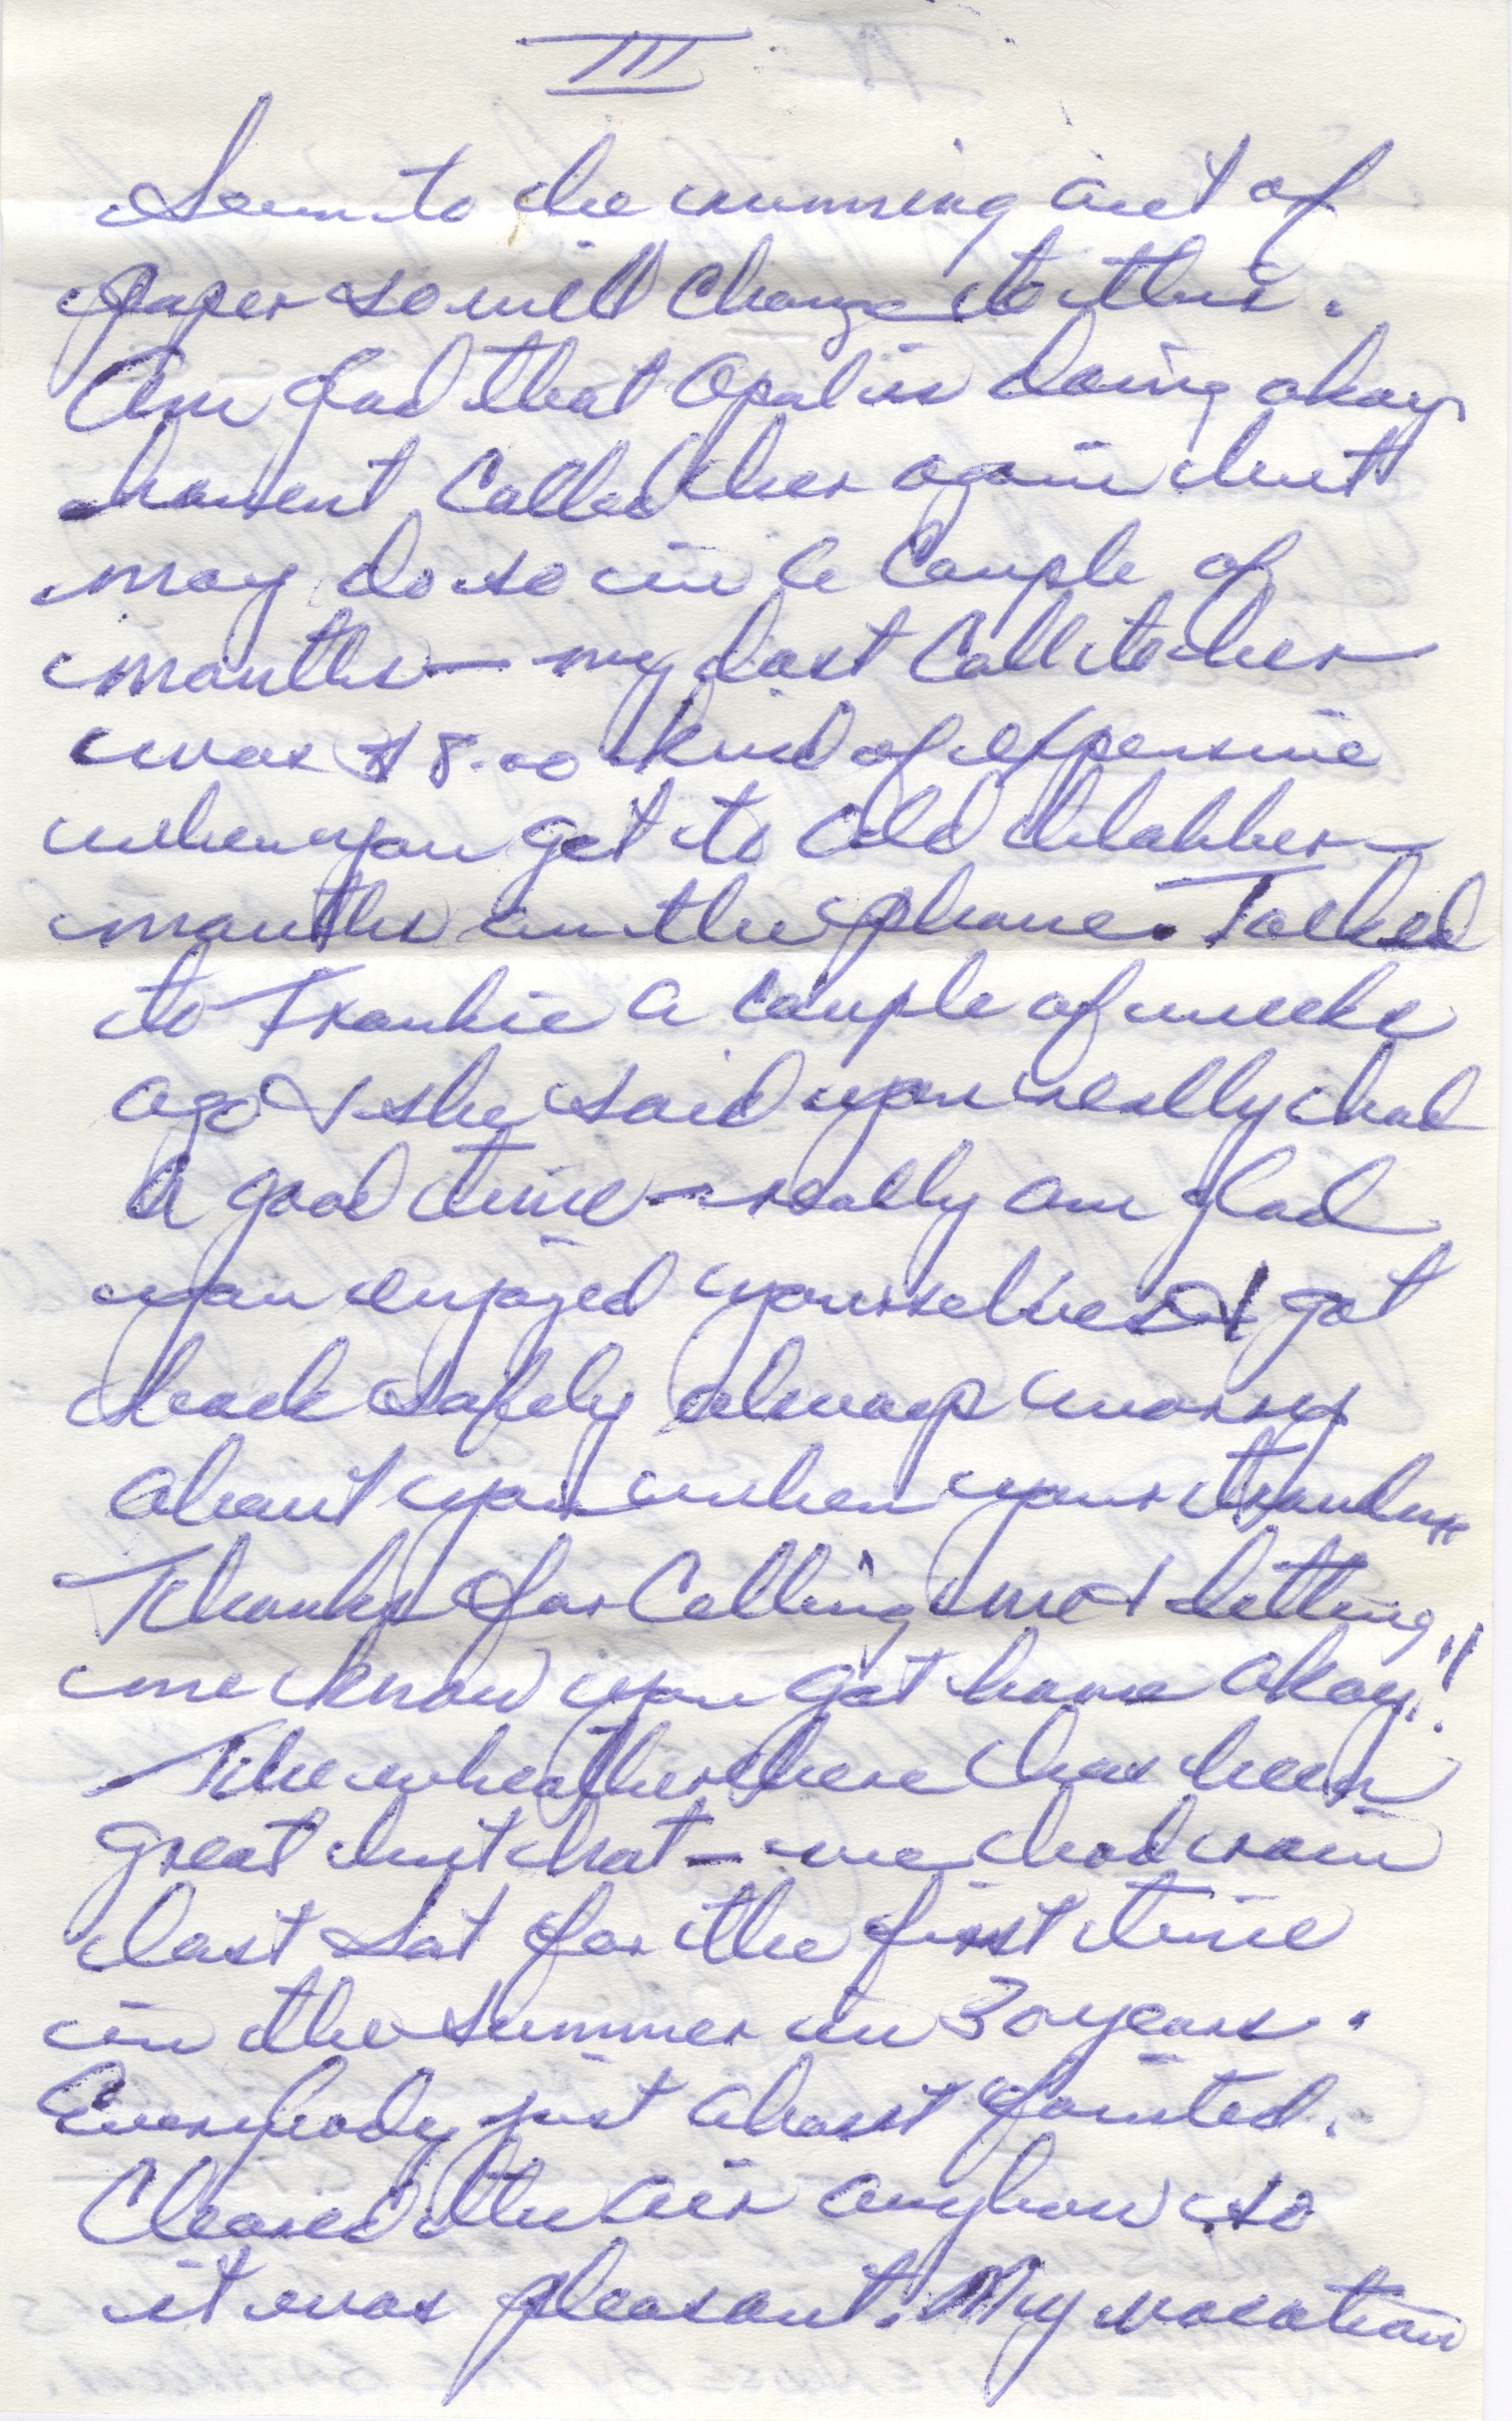 III
Seem to be running out of
paper so will change to this.
Am glad that Opal is doing okay
havent called her again but
may do so in a couple of
months — my last call to her
was $8.00 kind of expensive
when you get to old blabber-
mouths on the phone. Talked
to Frankie a couple of weeks
ago & she said you really had
a good time — really am glad
you enjoyed yourselves & got
back safely always worry
about you when your travling
Thanks for calling me & letting
me know you got home okay!!
The wheather here has been
great but hot — we had rain
last Sat for the first time
in the summer in 30 years.
Everybody just about fainted.
Cleared the air anyhow so
it was pleasant. My vacation